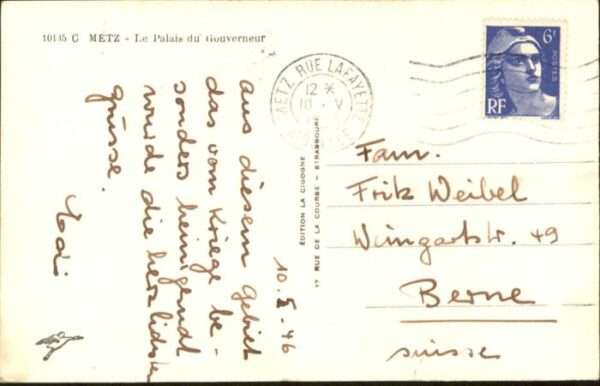 10135 C METZ - Le Palais du Gouverneur
aus diesem Gebiet
das vom Kriege be-
sonders heimgesucht
wurde die herzlichsten
grüsse.
10. V. 46
ÉDITION LA CIGOGNE
RUE DE LA COURSE - STRASBOURG
METZ RUE LAFAYETTE
12 *
10 - V
6F
POSTES
RF
Fam.
Fritz Weibel
Weingartstr. 49
Berne
suisse